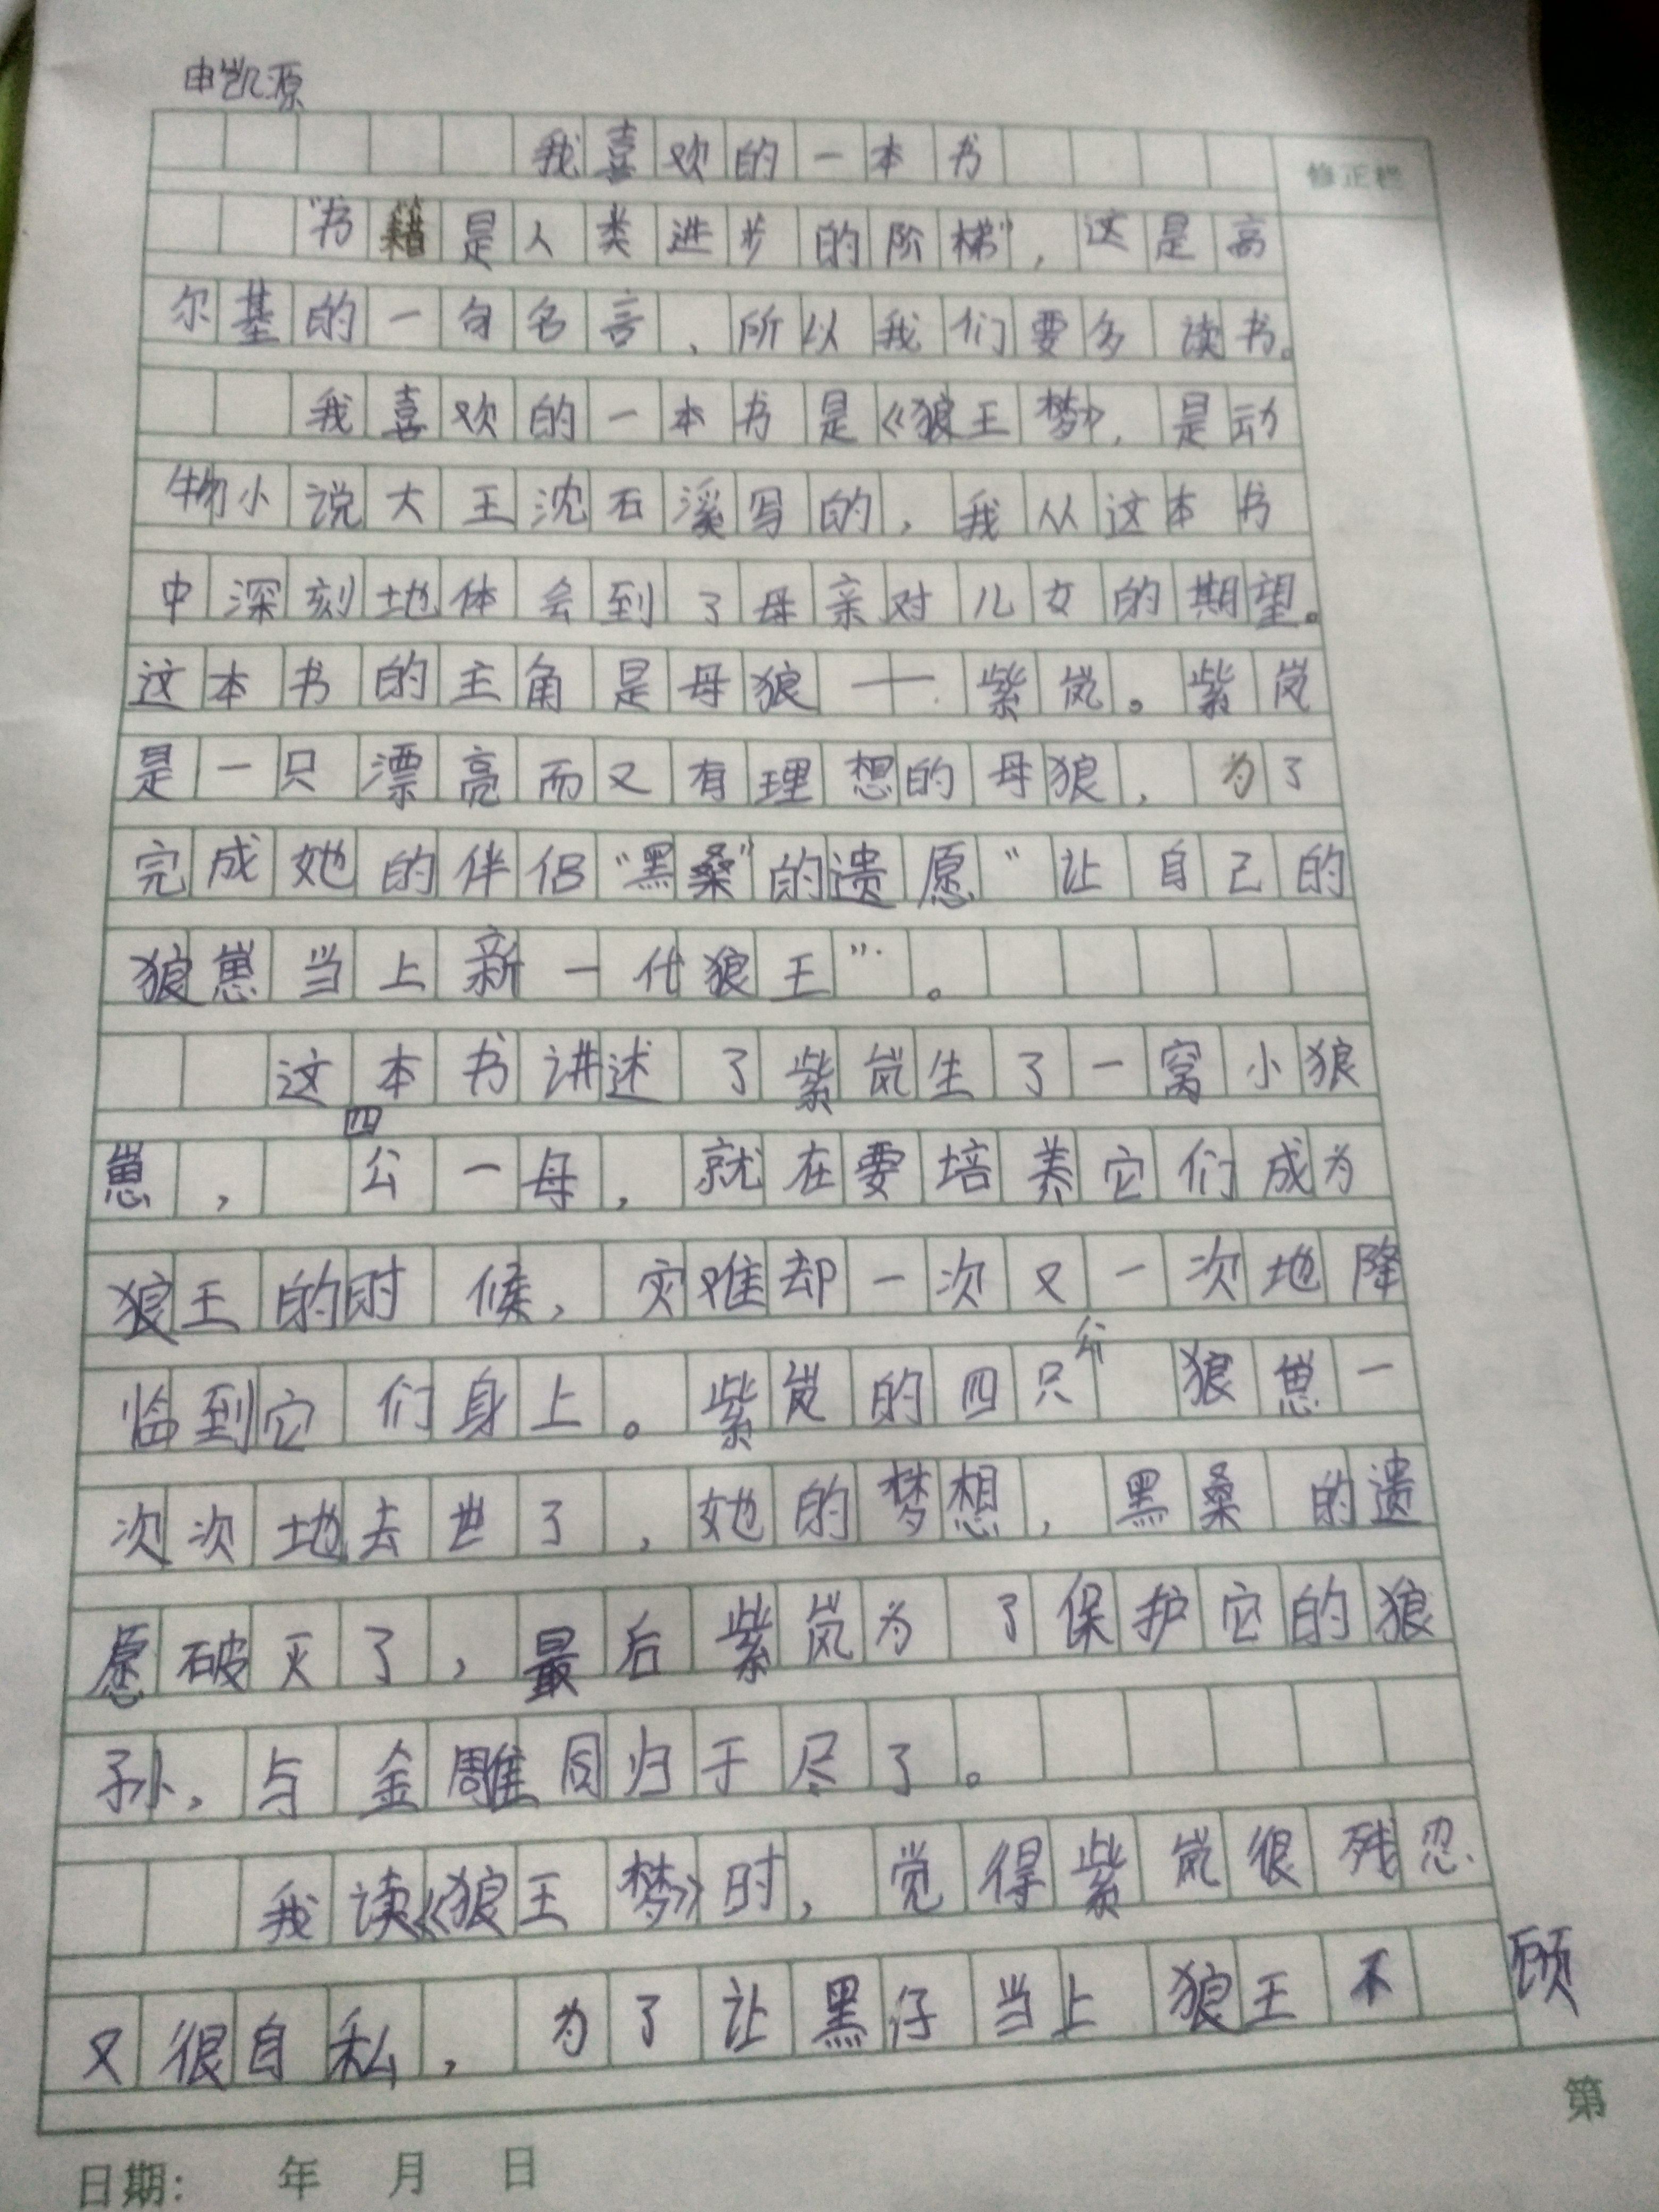 申凯源
我喜欢的一本书
修正栏
“书籍是人类进步的阶梯”，这是高
尔基的一句名言、所以我们要多读书。
我喜欢的一本书是《狼王梦》，是动
物小说大王沈石溪写的，我从这本书
中深刻地体会到了母亲对儿女的期望。
这本书的主角是母狼——紫岚。紫岚
是一只漂亮而又有理想的母狼，为了
完成她的伴侣“黑桑”的遗愿“让自己的
狼崽当上新一代狼王”。
这本书讲述了紫岚生了一窝小狼
崽，四公一母，就在要培养它们成为
狼王的时候，灾难却一次又一次地降
临到它们身上。紫岚的四只公狼崽一
次次地去世了，她的梦想，黑桑的遗
愿破灭了，最后紫岚为了保护它的狼
孙，与金雕同归于尽了。
我读《狼王梦》时，觉得紫岚很残忍
又很自私，为了让黑仔当上狼王不顾
第
日期： 年 月 日